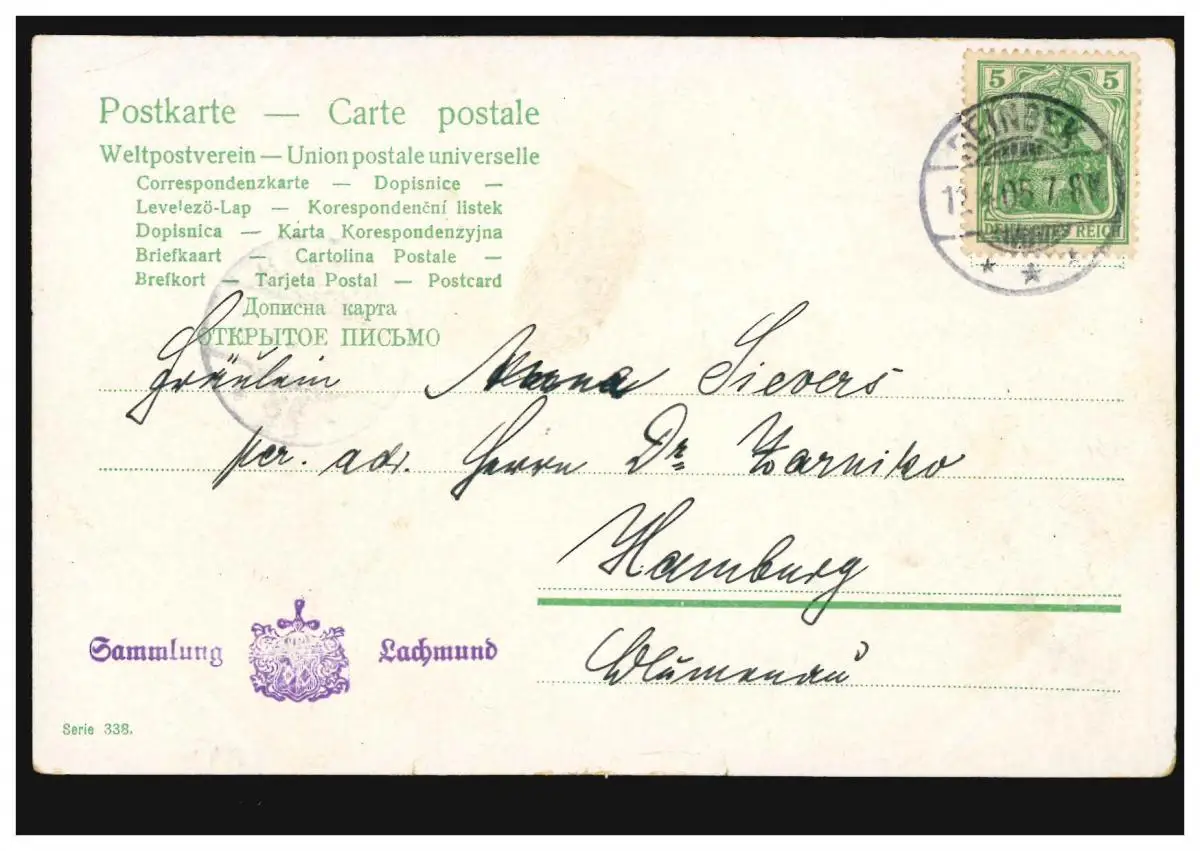 Postkarte — Carte postale
Weltpostverein — Union postale universelle
Correspondenzkarte — Dopisnice —
Levelező-Lap — Korespondenční listek
Dopisnica — Karta Korespondenzyjna
Briefkaart — Cartolina Postale —
Brefkort — Tarjeta Postal — Postcard
Дописна карта
ОТКРЫТОЕ ПИСЬМО
5 5
DEUTSCHES REICH
REINBEK
Fräulein Anna Sievers
per. adr. Herrn Dr. Zarniko
Hamburg
Blumenau
Sammlung Lachmund
Serie 338.